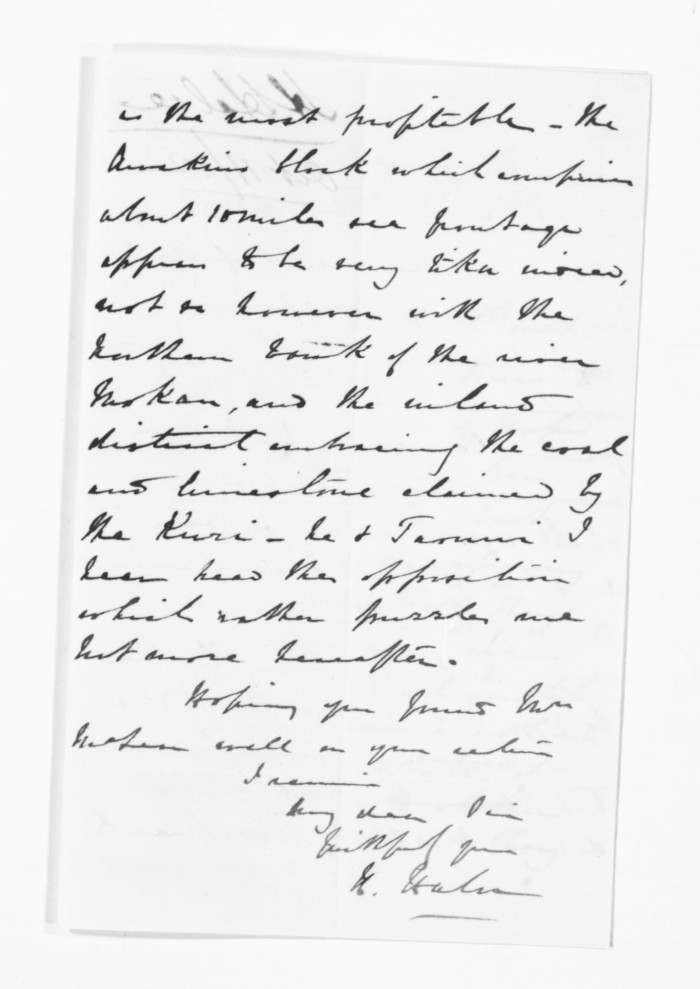 is the most profitable - the
Awakino block which comprises
about 10 miles sea frontage
appears to be very tika indeed,
not so however with the
northern bank of the river
Mokau, and the inland
district embracing the coal
and limestone claimed by
the Kuri - he & Taonui I
hear head the opposition
which rather puzzles me
but more hereafter.
Hoping you found Mrs
McLean well on your return
I remain
My dear Sir
faithfully yours
H. Halse